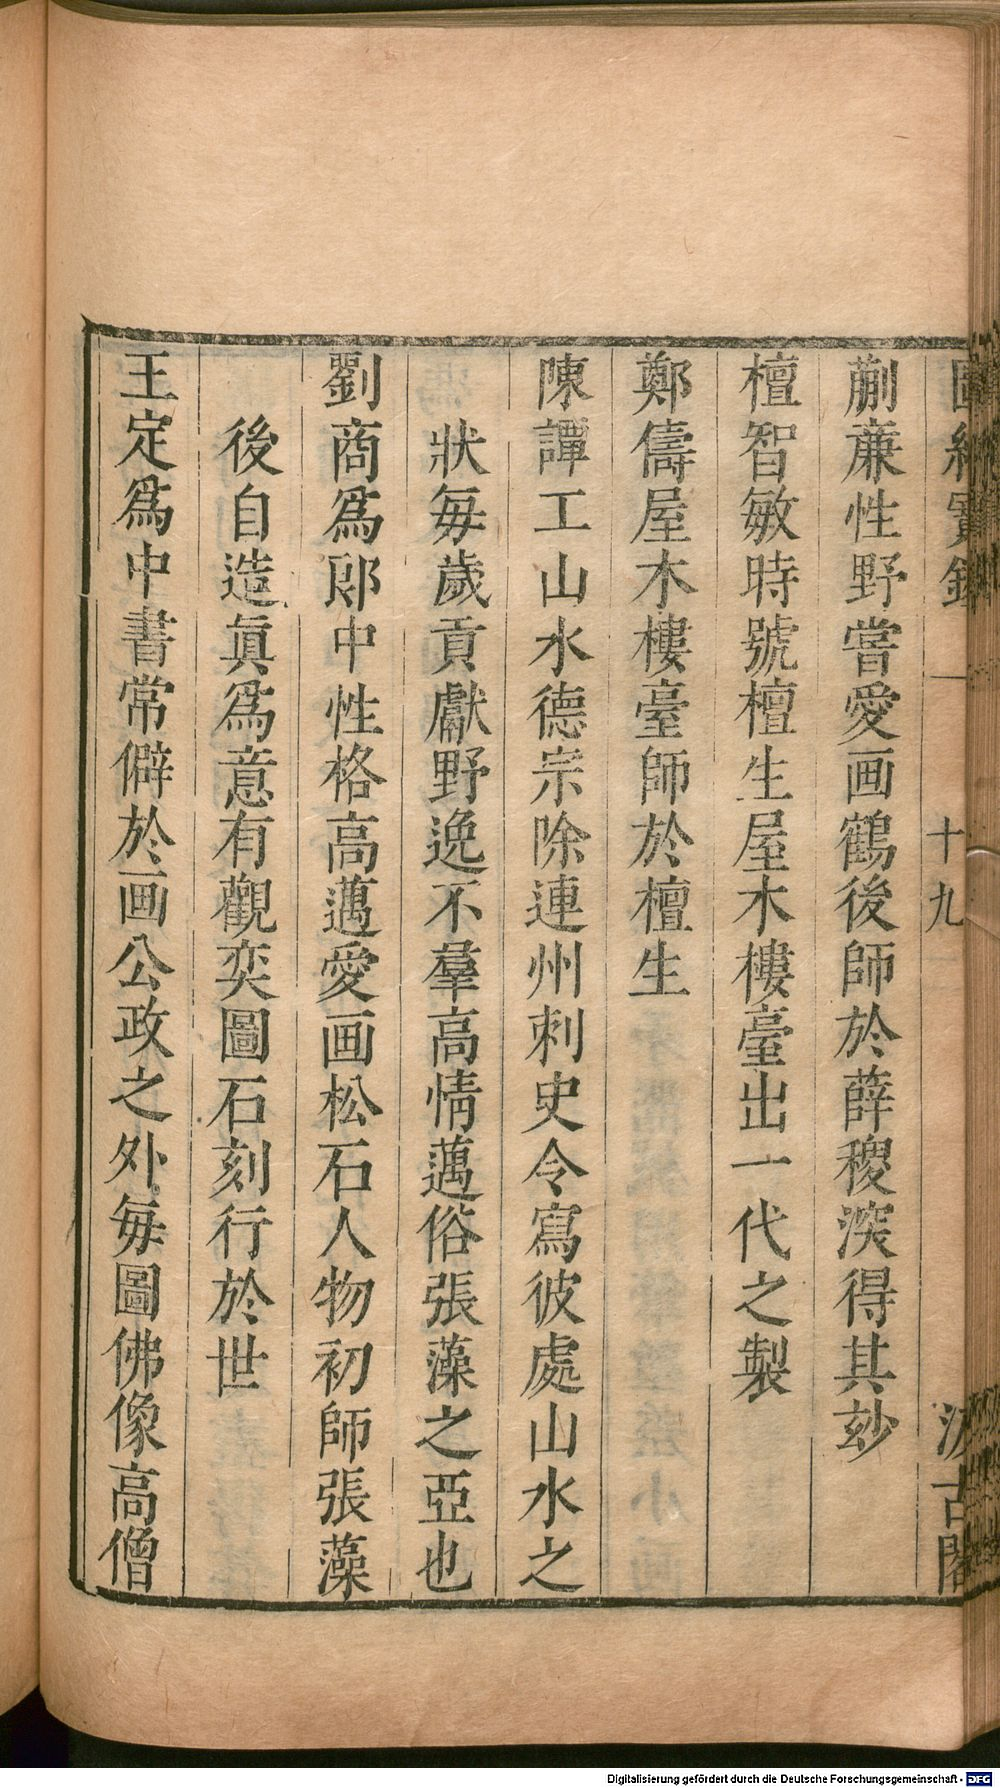 圖繪寶鑑 一 十九 汲古閣
蒯廉性野嘗愛画鶴後師於薛稷深得其玅
檀智敏時號檀生屋木樓臺出一代之製
鄭儔屋木樓臺師於檀生
陳譚工山水德宗除連州刺史令寫彼處山水之
狀毎歲貢獻野逸不羣高情邁俗張藻之亞也
劉商爲郞中性格高邁愛画松石人物初師張藻
後自造眞爲意有觀奕圖石刻行於世
王定爲中書常僻於画公政之外毎圖佛像高僧
Digitalisierung gefördert durch die Deutsche Forschungsgemeinschaft - DFG